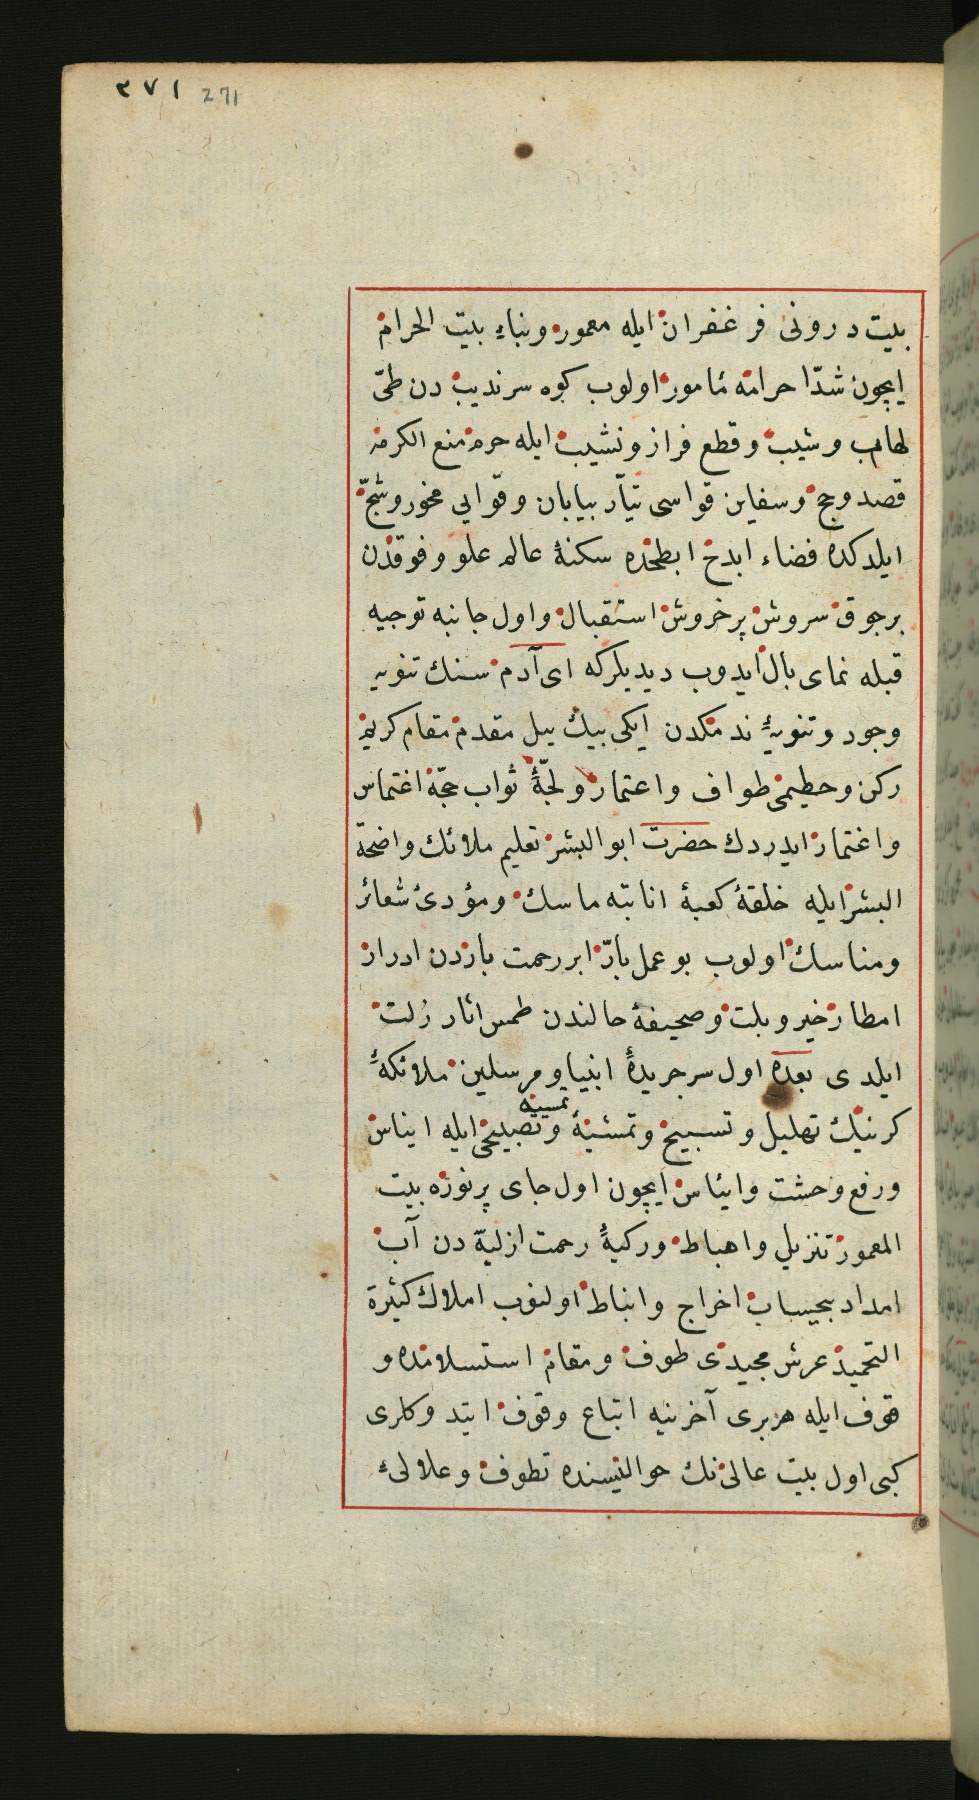 ٢٧١ 271
بيت درونى فر غفران ايله معمور وبناء بيت الحرام
ايچون شدّا حرامه مأمور اولوب كوه سرنديب دن طىّ
وشيب وقطع فراز ونشيب ايله حرم منع الكرمه
قصد وحج وسفاين قواسى تيّار بيابان وقوابى مخور وشجّ
ايلدكده فضاء ابدخ ابطحده سكنهٔ عالم علو وفوقدن
برجوق سروش پرخروش استقبال واول جانبه توجيه
قبله نماى بال ايدوب ديديلركه اى آدم سنك تنويه
وجود وتنويهٔ ندمكدن ايكى بيك ييل مقدم مقام كريم
ركن وحطيمى طواف واعتمار ولجّهٔ ثواب حجّه اغتماس
واغتمار ايدردك حضرت ابو البشر تعليم ملائك واضحة
البشر ايله خلقهٔ كعبهٔ انابته ماسك ومؤدئ شعائر
ومناسك اولوب بو عمل بارّ ابر رحمت باردن ادرار
امطار خير وبلت وصحيفهٔ حالندن طمس اثار زلت
ايلدى بعده اول سرجريدهٔ انبيا ومرسلين ملائكهٔ
كرنيك تهليل وتسبيح وتمشيهٔ وتصبيحى ايله ايناس
تمسيه
ورفع وحشت وايئاس ايچون اول جاى پرنوره بيت
المعمور تنزيلي واهباط وركيهٔ رحمت ازليّه دن آب
امداد بيحساب اخراج وانباط اولنوب املاك كثيرة
التحميد عرش مجيدى طوف ومقام استسلامده و
قوف ايله هربرى آخرينه اتباع وقوف ايتدوكلرى
كبى اول بيت عالى نك حواليسنده تطوف وعلالىء